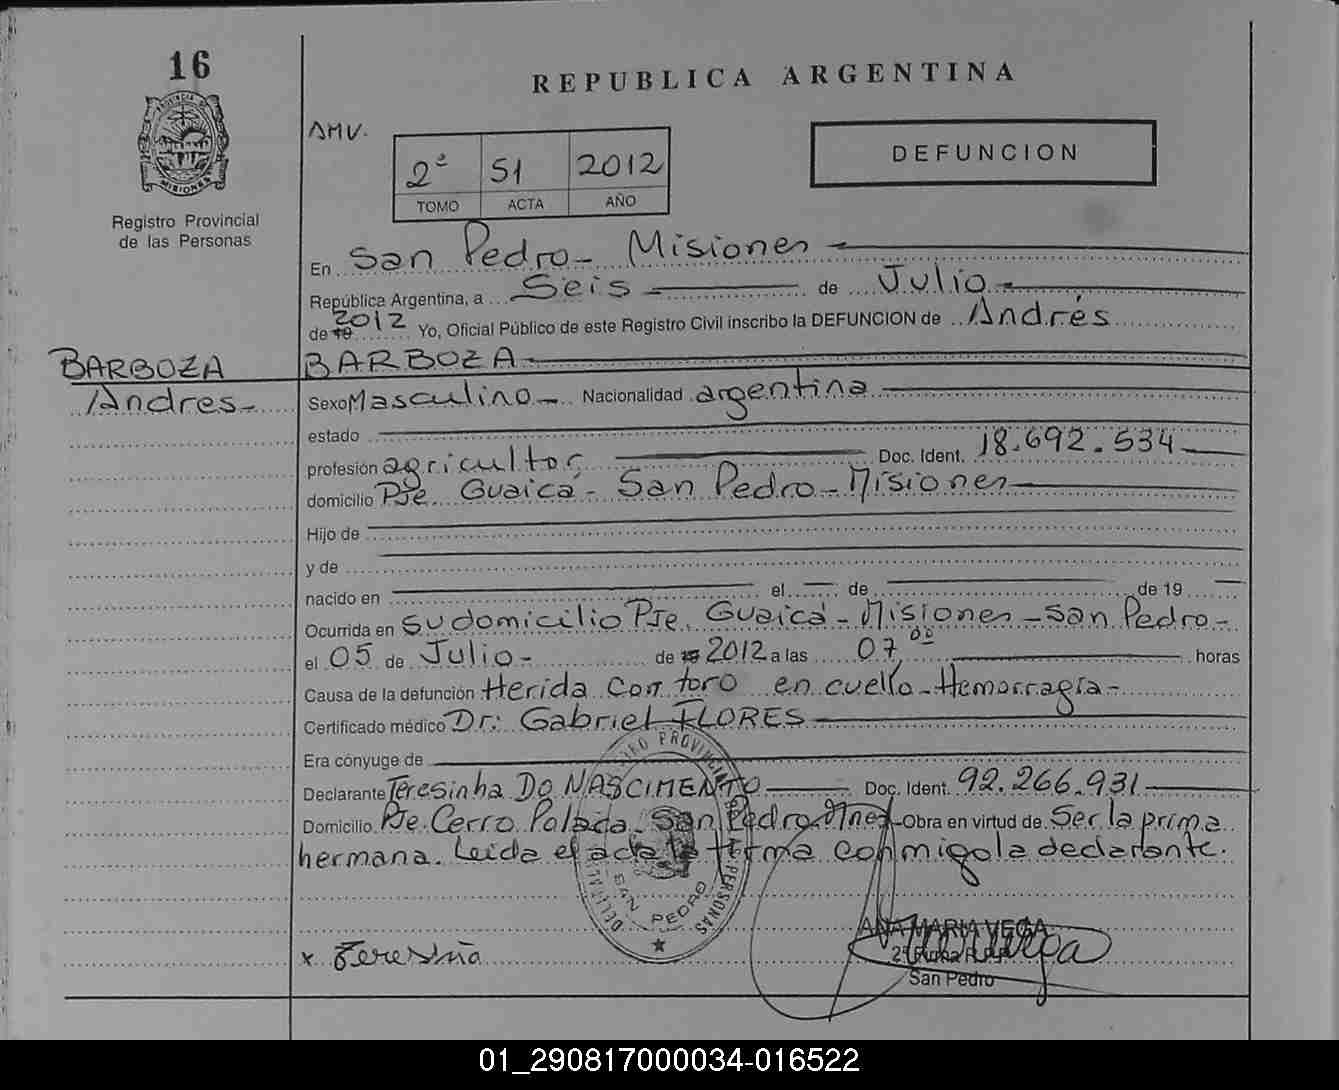 16
REPUBLICA ARGENTINA
PROVINCIA DE
MISIONES
Registro Provincial
de las Personas
AMV.
2ª 51 2012
TOMO ACTA AÑO
DEFUNCION
En San Pedro - Misiones
República Argentina, a Seis de Julio
de 19 2012 Yo, Oficial Público de este Registro Civil inscribo la DEFUNCION de Andrés
BARBOZA
BARBOZA
Andres
Sexo Masculino - Nacionalidad argentina
estado
profesión agricultor Doc. Ident. 18.692.534
domicilio Pje Guaicá - San Pedro - Misiones
Hijo de
y de
nacido en el de de 19
Ocurrida en su domicilio Pje. Guaicá - Misiones - San Pedro -
el 05 de Julio - de 2012 a las 07 00 horas
Causa de la defunción Herida con toro en cuello - Hemorragia -
Certificado médico Dr: Gabriel FLORES
Era cónyuge de
Declarante Teresinha DO NASCIMENTO Doc. Ident. 92.266.931
Domicilio Pje. Cerro Polada San Pedro Mnes - Obra en virtud de Ser la prima
hermana. Leida el acta la firma conmigo la declarante.
SAN PEDRO
x
ANA MARIA VEGA
San Pedro
01_290817000034-016522